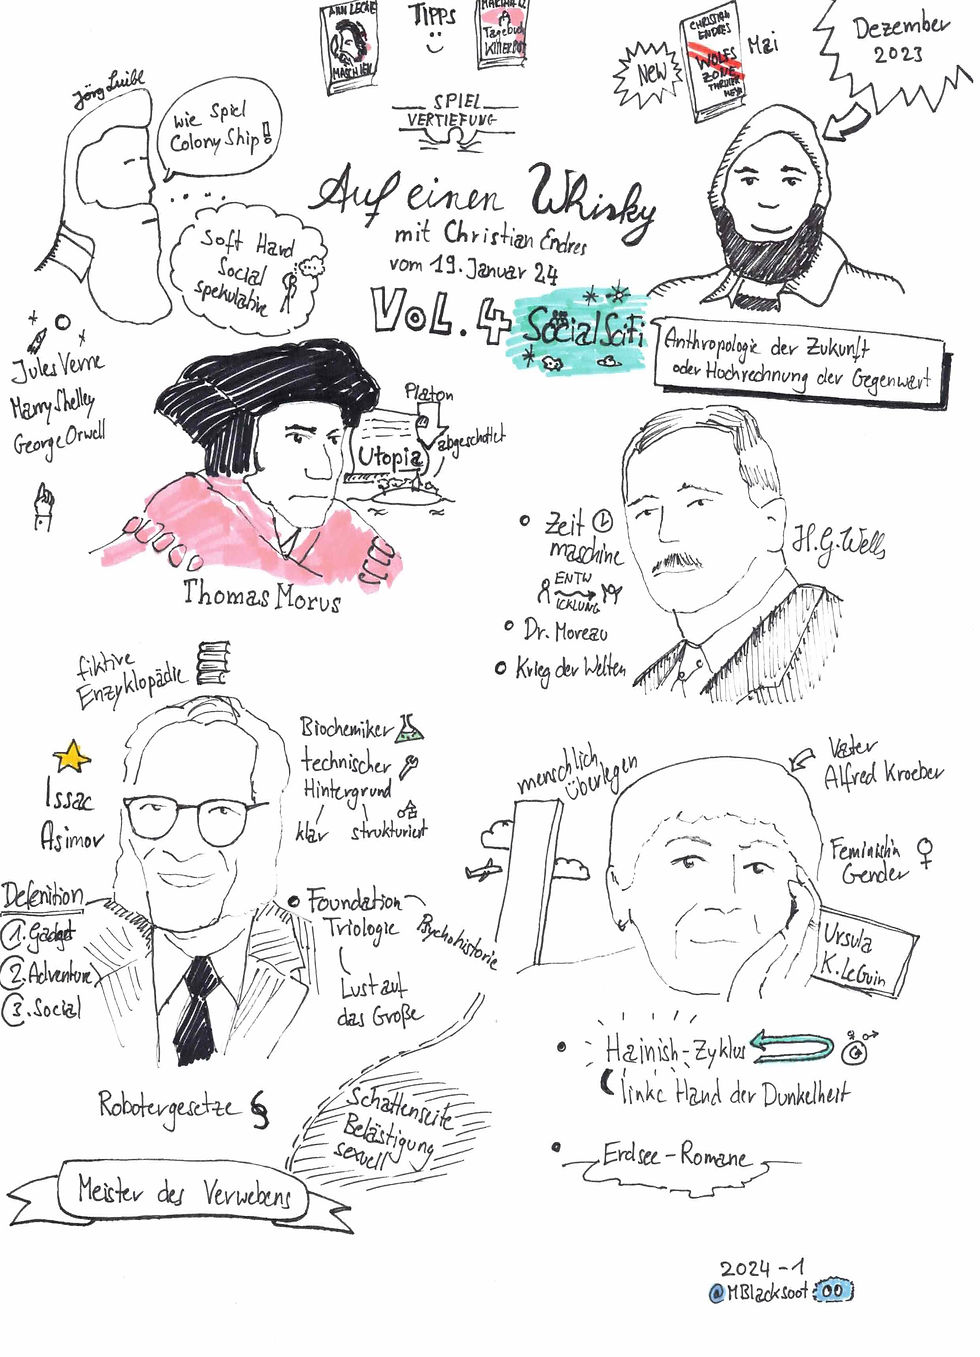 ANN LECKIE
MASCHINEN
TIPPS
Tagebuch
KILLERBOT
CHRISTIAN
ENDRES
WOLFS
ZONE
THRILLER
HEYNE
New
Mai
Dezember
2023
SPIEL
VERTIEFUNG
Jörg
wie Spiel
Colony Ship!
Soft Hard
Social
spekulative
Auf einen Whisky
mit Christian Endres
vom 19. Januar 24
VOL. 4
Social SciFi
Anthropologie der Zukunft
oder Hochrechnung der Gegenwart
Jules Verne
Marry Shelley
George Orwell
Platon
abgeschottet
Utopia
Thomas Morus
Zeit
maschine
ENTW
ICKLUNG
Dr. Moreau
Krieg der Welten
H.G. Wells
fiktive
Enzyklopädie
Issac
Asimov
Biochemiker
technischer
Hintergrund
klar
strukturiert
Defenition
1. Gadget
2. Adventure
3. Social
Foundation
Triologie
Psychohistorie
Lust auf
das Große
Robotergesetze §
Schattenseite
Belästigung
sexuell
Meister des Verwebens
menschlich
überlegen
Vater
Alfred Kroeber
Feministin
Gender ♀
Ursula
K. LeGuin
Hainish-Zyklus
linke Hand der Dunkelheit
Erdsee-Romane
2024-1
@MBlacksoot